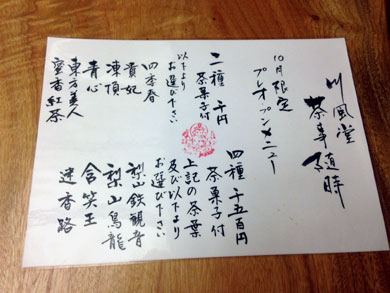 川風堂
茶事随時
10月限定
プレオープンメニュー
二種 千円
茶菓子付
以下より
お選び下さい
四季春
貴妃
凍頂
青心
東方美人
蜜香紅茶
四種 千五百円
茶菓子付
上記の茶葉
及び以下より
お選び下さい
梨山鉄観音
梨山烏龍
含笑王
迷香路